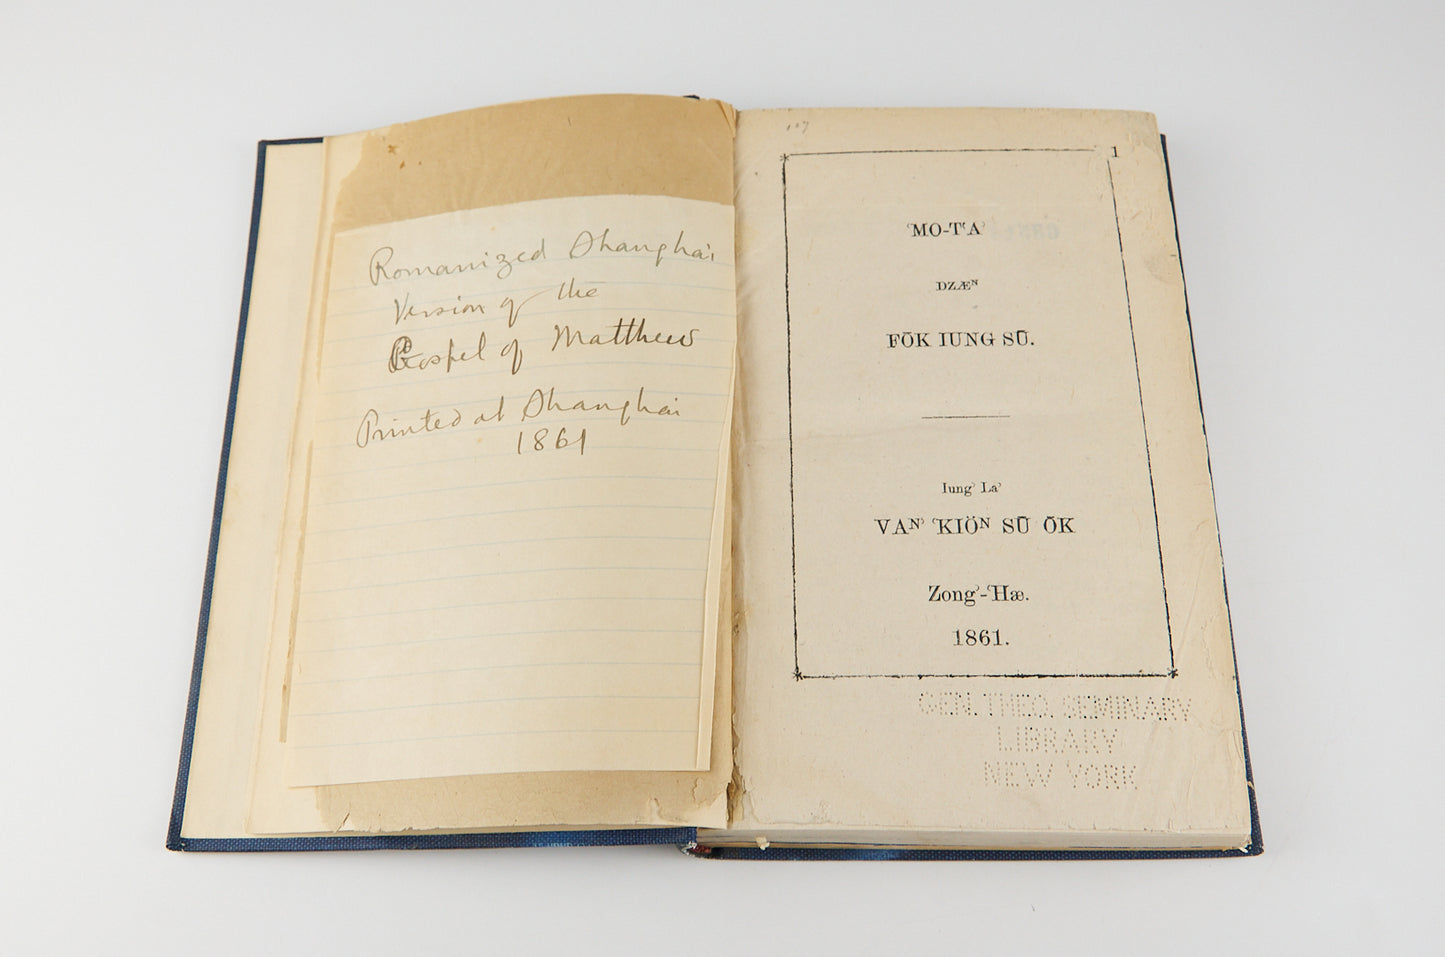 Romanized Shanghai
Version of the
Gospel of Matthew
Printed at Shanghai
1861
107
1
ʻMO-TʻAʼ
DZÆᴺ
FŎK IUNG SŪ.
Iungʼ Laʼ
VAᴺʼ ʻKIÖᴺ SŪ ŎK
Zongʼ-ʻHæ.
1861.
GEN. THEO. SEMINARY
LIBRARY
NEW YORK